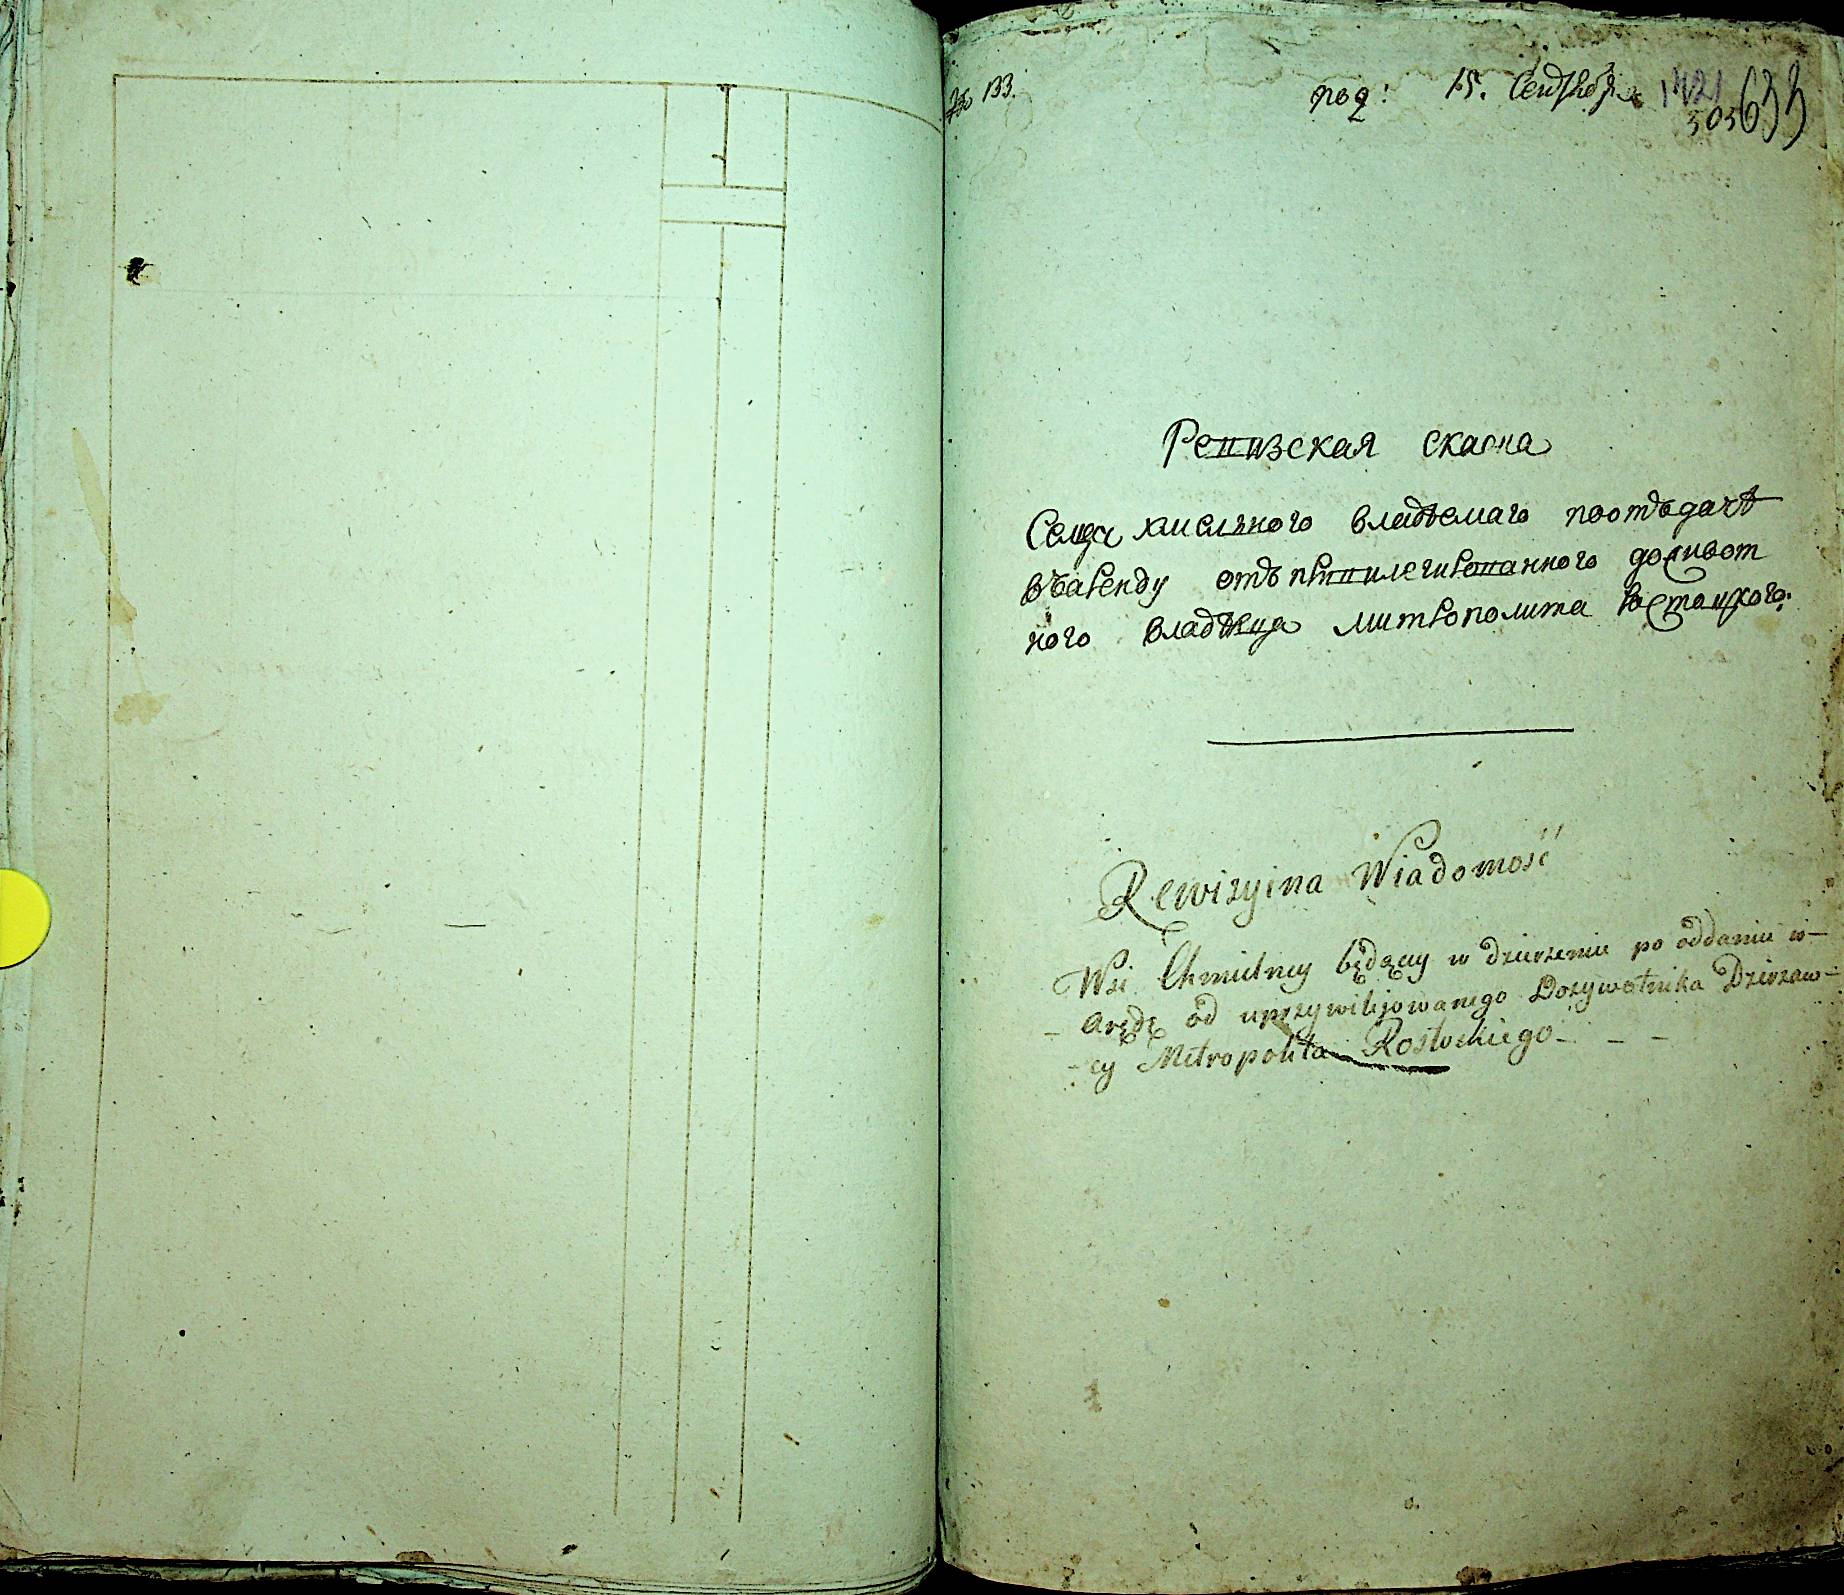 № 133.
род: 15. Сентября 1721
303 633
Ревизская скаска
Села хмелнного владѣемаго поотъдачѣ
въаренду отъ привилегированного доживот
ного владѣлца митрополита Ростоцкого.
Rewizyina Wiadomość
Wsi Chmielney będącey w dzierżeniu po oddaniu w-
- Arędę od uprzywilijowanego Dożywotnika Dzierzaw-
-cy Metropolita Rostockiego - - -